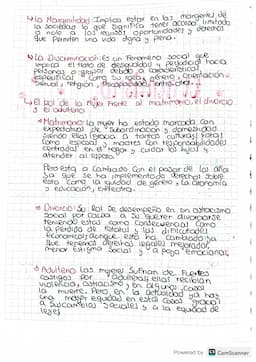 La Marginalidad: Implica estar en los margenes de
la sociedad lo que significa tener acceso limitado
o nulo a los recursos, oportunidades y derechos
que permiten una vida digna y plena.
La Discriminación: Es un fenomeno social que
implica el trato de desigualdad y perjudicial hacia
personas o grupos debido a características
especificas como genero, orientación
sexual, religion, discapacidad, entre otras.
El rol de la mujer frente al matrimonio, el divorcio
y el adulterio
Matrimonio: La mujer ha estado marcada con
expectativas de subordinacion y domesticidad
siendo ellas
como esposas y madres con responsabilidades
centradas en el hogar y cuidar los hijos y
atender al esposo.
Pero esto a cambiado con el pasar de los años
ya que se ha implementado derechos sobre
esto como la igualdad de género, la economía
y educación, entre otra.
Divorcio: Su rol se desempeño en un ostracismo
social por causa a su querer divorciarse
teniendo estas como consecuencias como
la perdida de total y las dificultades
economicas, aunque esto ha cambiado ya
que tenemos derechos legales mejorados,
menor estigma social y apoyo emocional.
Adulterio: Las mujeres sufrian de fuertes
castigos por adulteras, ellas recibian
violencia, ostracismo y en algunos casos
la muerte. Pero en la actualidad ya hay
una mayor equidad en esta cosas gracias
a sociales y a la equidad de
leyes
Powered by CamScanner